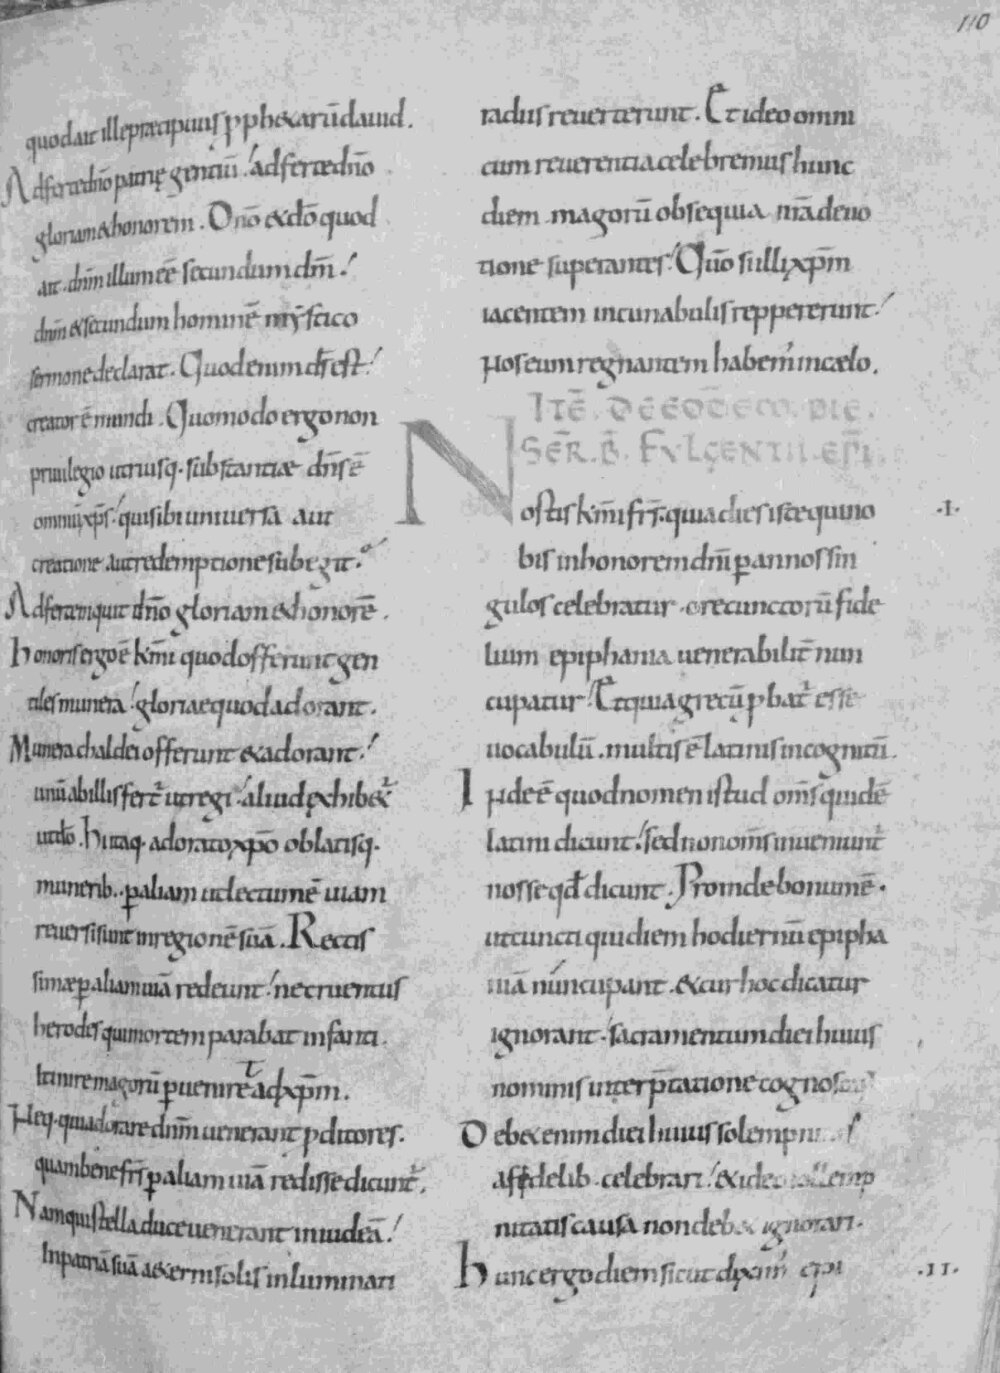 110
quod ait ille precipuus ꝓphexarū dauid.
Adferte dn̄o patrię gentiū! adferte dn̄o
gloriam & honorem. Dn̄o & dō quod
ait. dnm̄ illum eē secundum dm̄!
dnm̄ & secundum hominē mystico
sermone declarat. Quod enim ds̄ est!
creator ē mundi. Quomodo ergo non
priuilegio utriusq. substantiæ dn̄s ē
omniū xp̄s! qui sibi uniuersa aut
creatione aut redemptione subegit.
Adferte inquit dn̄o gloriam & honorē.
honoris ergo ē km̄i quod offerunt gen
tiles munera! gloriae quod adorant.
Munera chaldei offerunt & adorant!
unū ab illis fert̄ ut regi! aliud exhibet̄
ut dō. hi itaq. adorato xp̄o oblatisq.
munerib. ꝑ aliam ut lectum ē uiam
reuersi sunt in regionē suā. Rectis
simae ꝑ aliam uiā redeunt! ne cruentus
herodes qui mortem parabat infanti.
Itinire magorū ꝑuenire ad xp̄m.
Neq. qui adorare dnm̄ uenerant ꝓditores.
quam bene fr̄s ꝑ aliam uiā redisse dicunt̄.
Nam qui stella duce uenerant in iudeā!
In patriā suā aeterni solis inluminati
radiis reuerterunt. Et ideo omni
cum reuerentia celebremus hunc
diem. magorū obsequia nr̄a deuo
tione superantes! Quō si illi xp̄m
iacentem in cunabulis reppererunt!
Nos eum regnantem habem' in caelo.
ITĒ. DE EODE͞ CO. DIE.
SER͞. B͞. FVLGENTII. EPĪ.
Nostis km̄i fr̄s. quia dies iste quino
·I·
bis in honorem dnī ꝑ annos sin
gulos celebratur. ore cunctorū fide
lium epiphania uenerabilit̄ nun
cupatur! Et quia grecū ꝓbat̄ esse
uocabulū. multis ē latinis incognitū.
Inde ē quod nomen istud om̄s quidē
latini dicunt! sed non om̄s inueniunt̄
nosse qd̄ dicunt. Proinde bonum ē.
ut cuncti qui diem hodiernū epipha
niā nuncupant. & cur hoc dicatur
ignorant! sacramentum diei huius
nominis interp̄tatione
Debet enim diei huius
a fidelib. celebrari! & ideo
nitatis causa non debet ignorari.
hunc ergo diem sicut dixim' epi
·II·